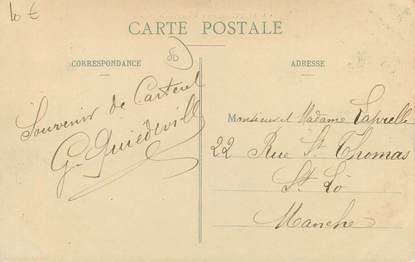 10 €
CARTE POSTALE
50
CORRESPONDANCE
ADRESSE
Souvenir de Carteret
G. Quiédeville
Monsieur et Madame
22 Rue St Thomas
St Lô
Manche